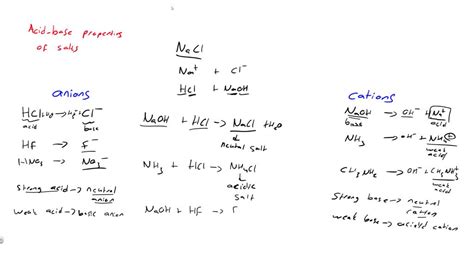 Acid-base properties
of salts
NaCl
Na⁺ + Cl⁻
HCl + NaOH
NaOH + HCl → NaCl + H₂O
neutral salt
NH₃ + HCl → NH₄Cl
acidic
salt
NaOH + HF →
anions
HCl + H₂O → H₃O⁺ + Cl⁻
acid base
HF → F⁻
HNO₃ → NO₃⁻
strong acid → neutral
anion
weak acid → basic anion
cations
NaOH → OH⁻ + Na⁺
base acid
NH₃ → OH⁻ + NH₄⁺
weak
acid
CH₃NH₂ → OH⁻ + CH₃NH₃⁺
weak
acid
Strong base → neutral
cation
weak base → acidic cation